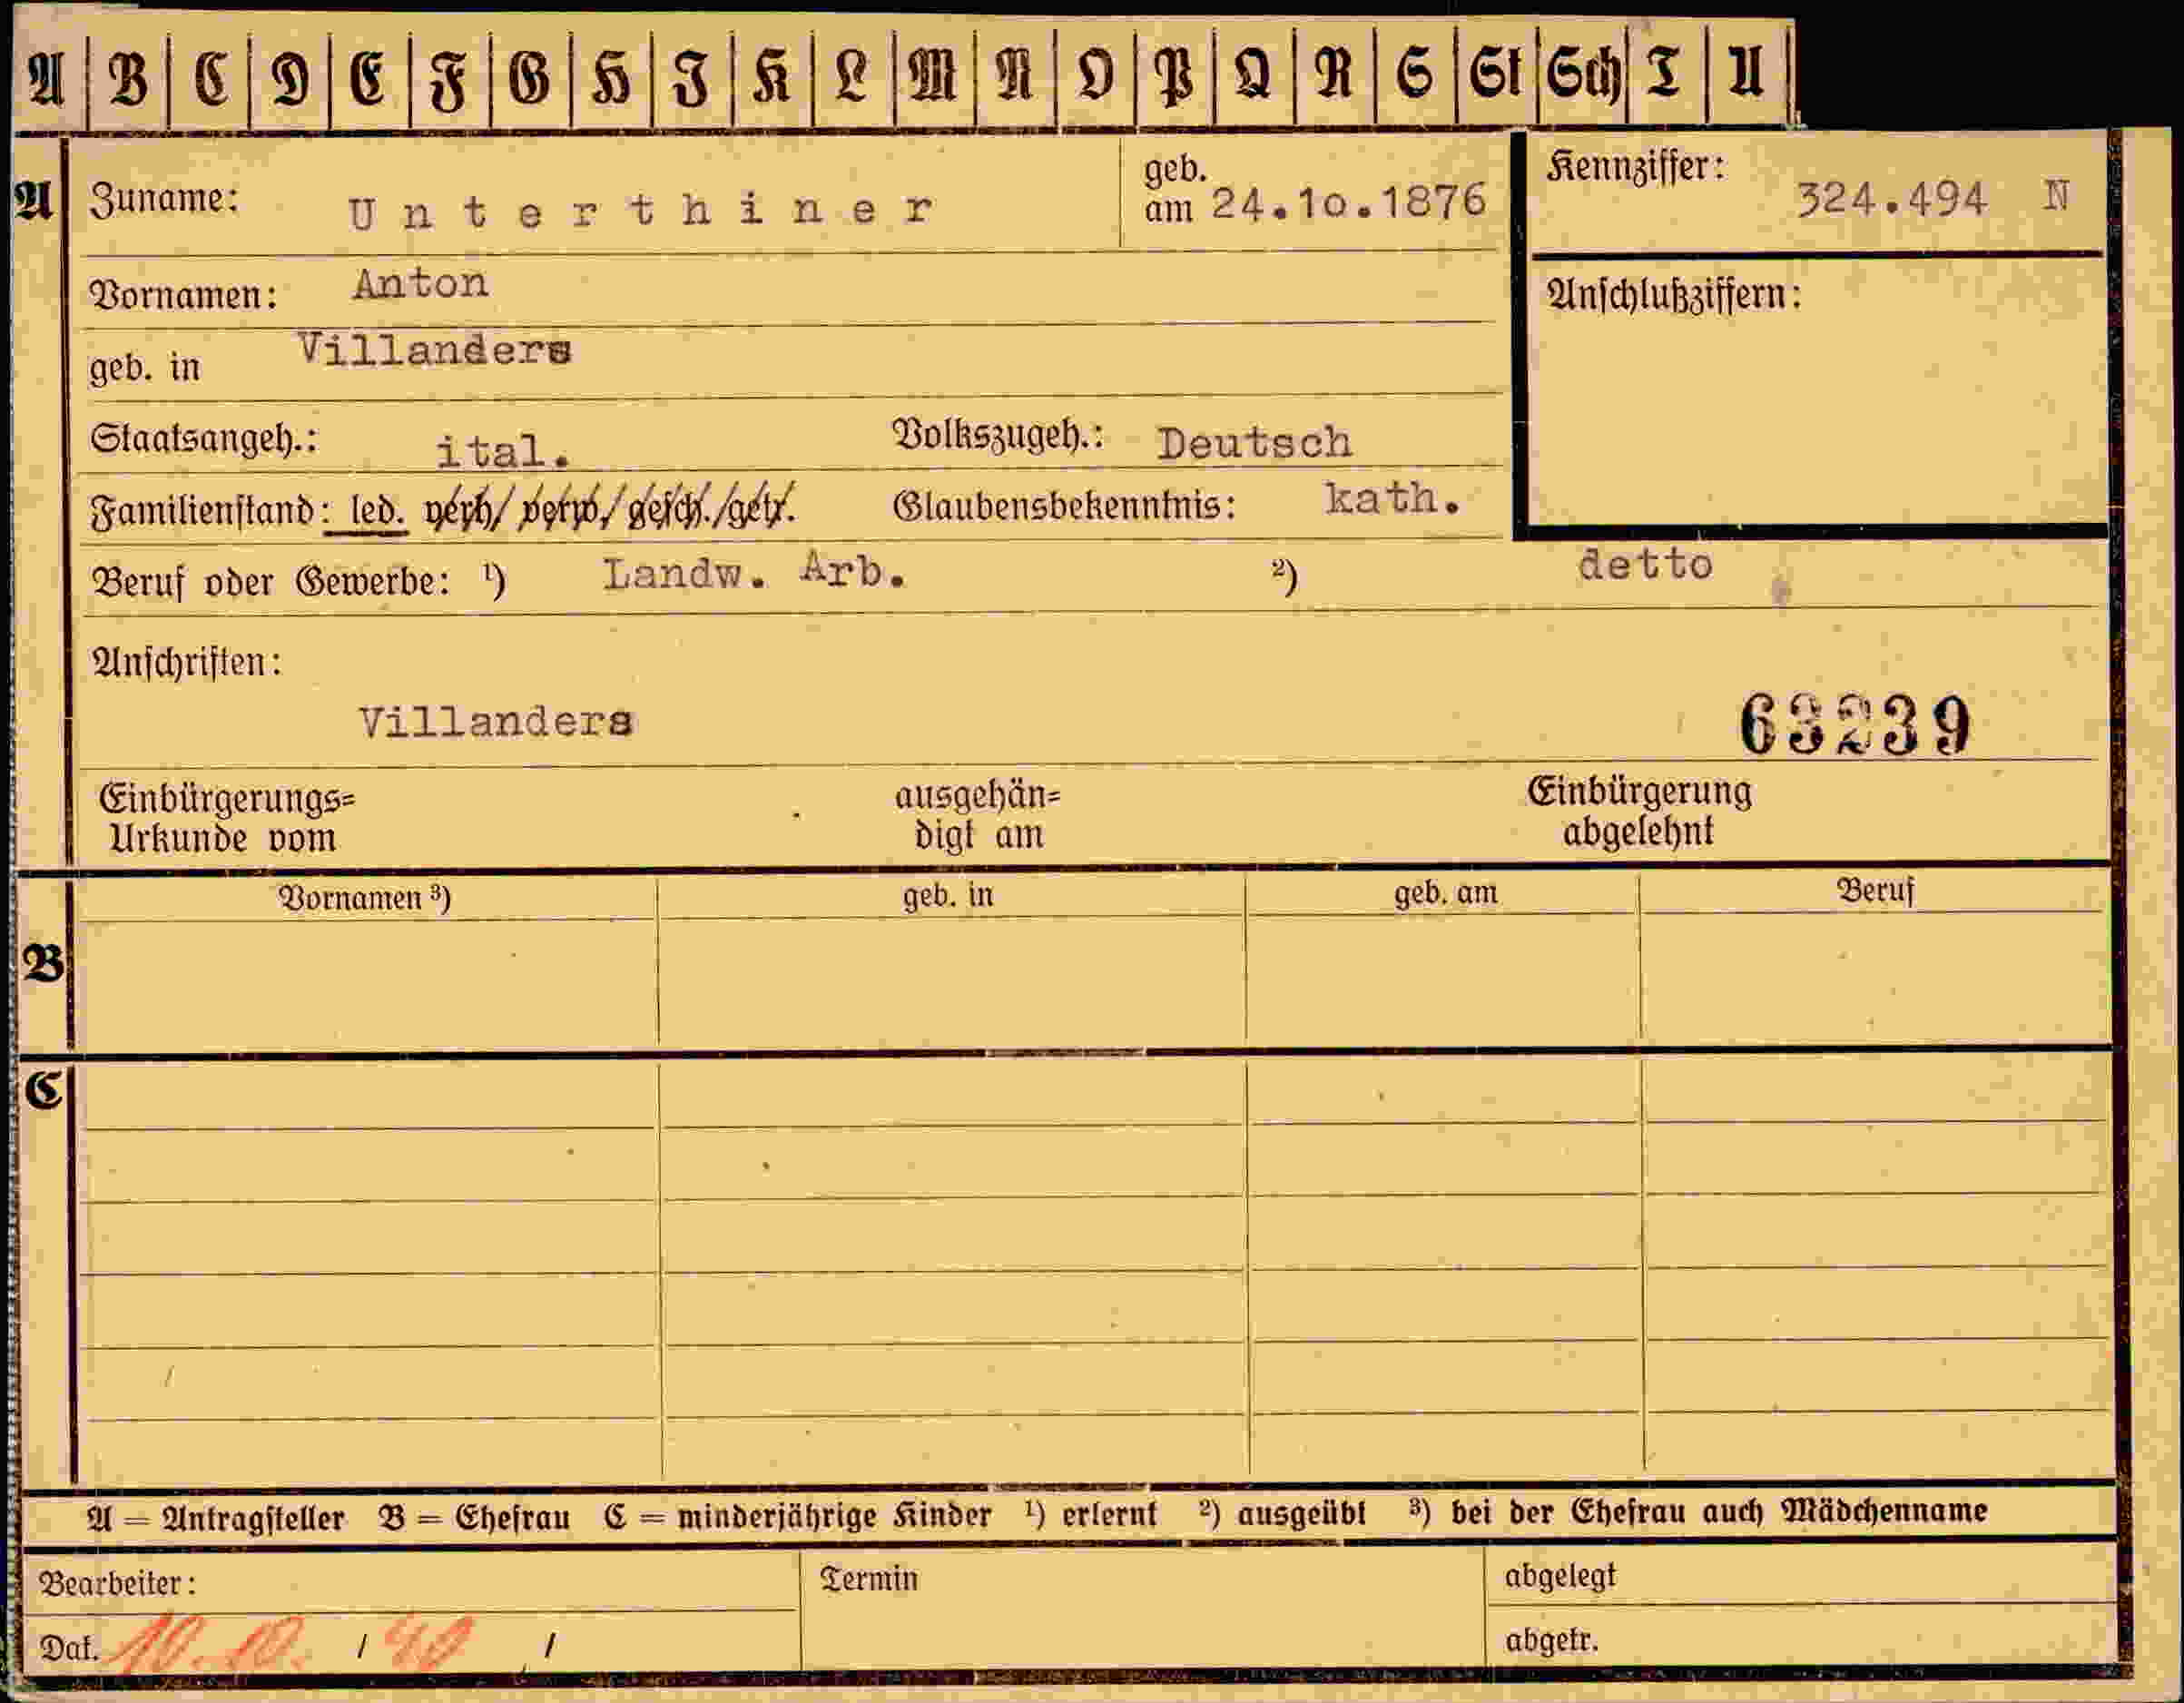 A B C D E F G H J K L M N O P Q R S St Sch T U
A
Zuname: Unterthiner geb. am 24.10.1876 Kennziffer: 324.494 N
Vornamen: Anton Anschlußziffern:
geb. in Villanders
Staatsangeh.: ital. Volkszugeh.: Deutsch
Familienstand: led. verh/ verw./ gesch./getr. Glaubensbekenntnis: kath.
Beruf oder Gewerbe: ¹) Landw. Arb. ²) detto
Anschriften:
Villanders 63239
Einbürgerungs= ausgehän= Einbürgerung
Urkunde vom digt am abgelehnt
Vornamen ³) geb. in geb. am Beruf
B
C
A = Antragsteller B = Ehefrau C = minderjährige Kinder ¹) erlernt ²) ausgeübt ³) bei der Ehefrau auch Mädchenname
Bearbeiter: Termin abgelegt
Dat. 10.10. / 40 / abgetr.